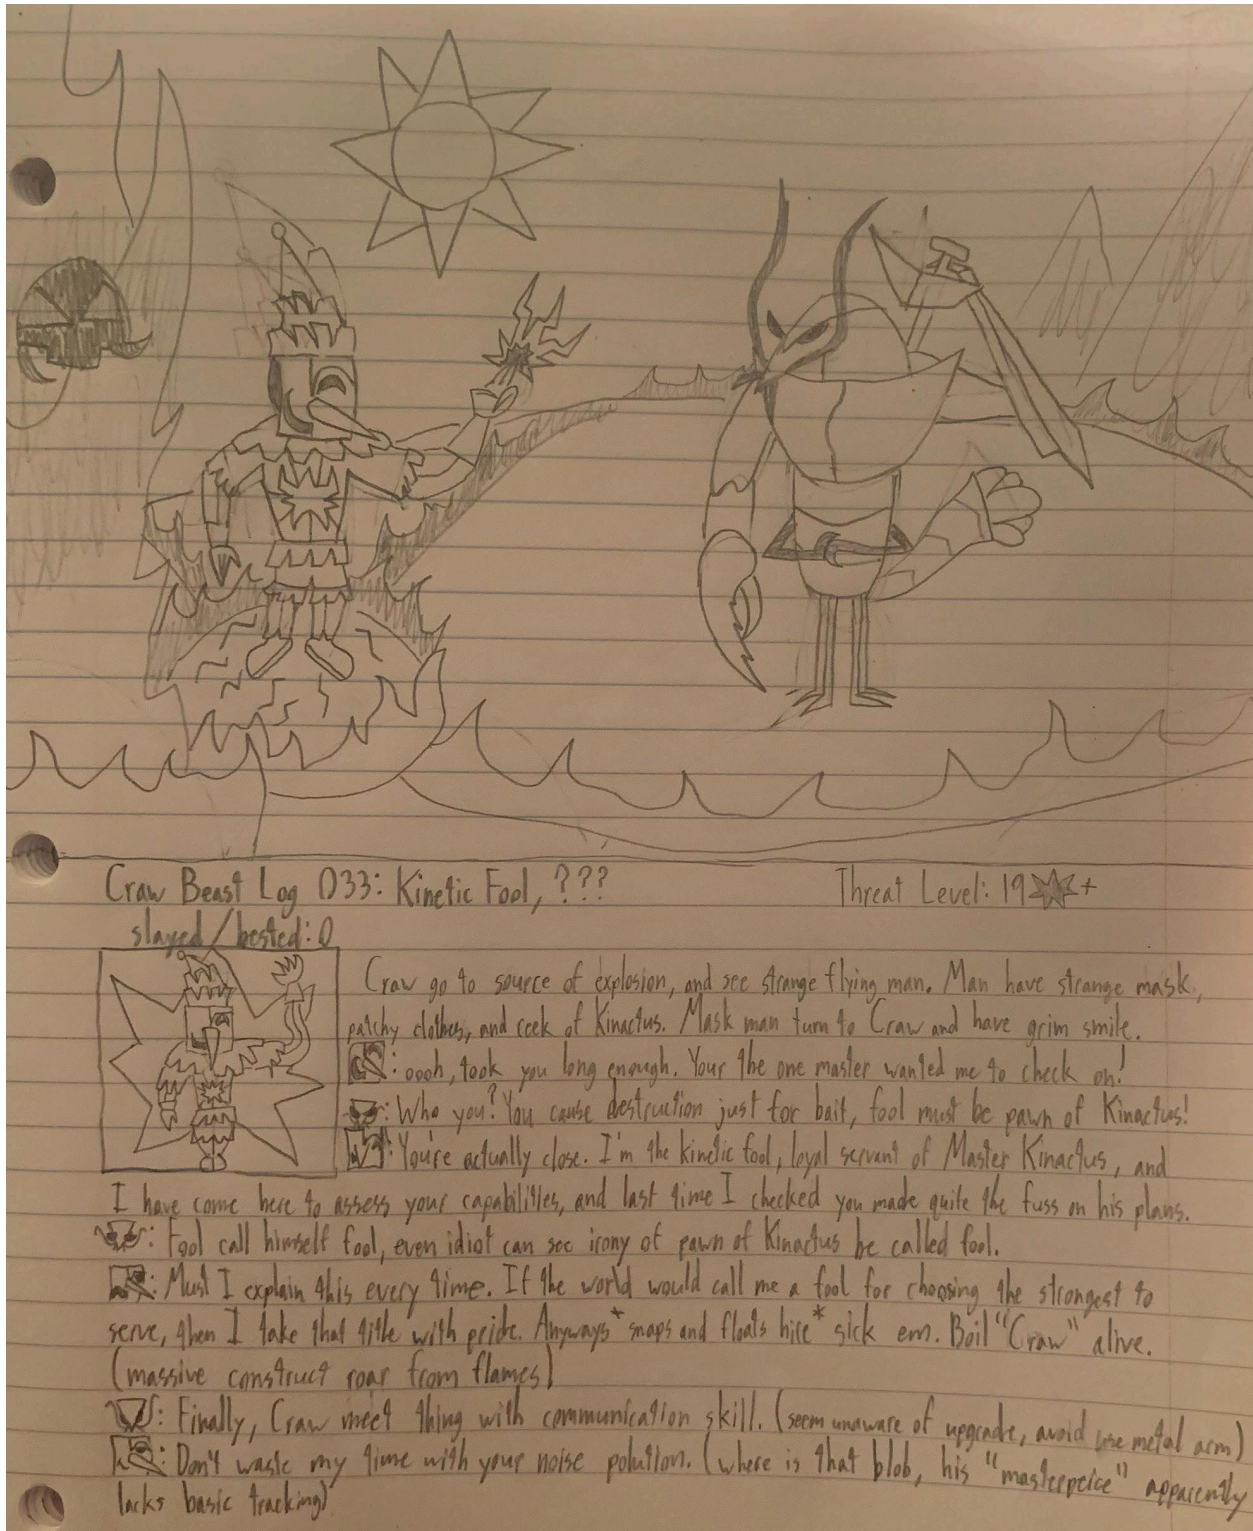 Craw Beast Log 033: Kinetic Fool, ???
Threat Level: 19 +
slayed/bested: 0
Craw go to source of explosion, and see strange flying man. Man have strange mask,
patchy clothes, and reek of Kinactus. Mask man turn to Craw and have grim smile.
: oooh, took you long enough. Your the one master wanted me to check on!
: Who you? You cause destruction just for bait, fool must be pawn of Kinactus!
: You're actually close. I'm the kinetic fool, loyal servant of Master Kinactus, and
I have come here to assess your capabilities, and last time I checked you made quite the fuss on his plans.
: Fool call himself fool, even idiot can see irony of pawn of Kinactus be called fool.
: Must I explain this every time. If the world would call me a fool for choosing the strongest to
serve, then I take that title with pride. Anyways *snaps and floats hire* sick em. Boil "Craw" alive.
(massive construct roar from flames)
: Finally, Craw meet thing with communication skill. (seem unaware of upgrade, avoid use metal arm)
: Don't waste my time with your noise polution. (where is that blob, his "masterpeice" apparently
lacks basic tracking)